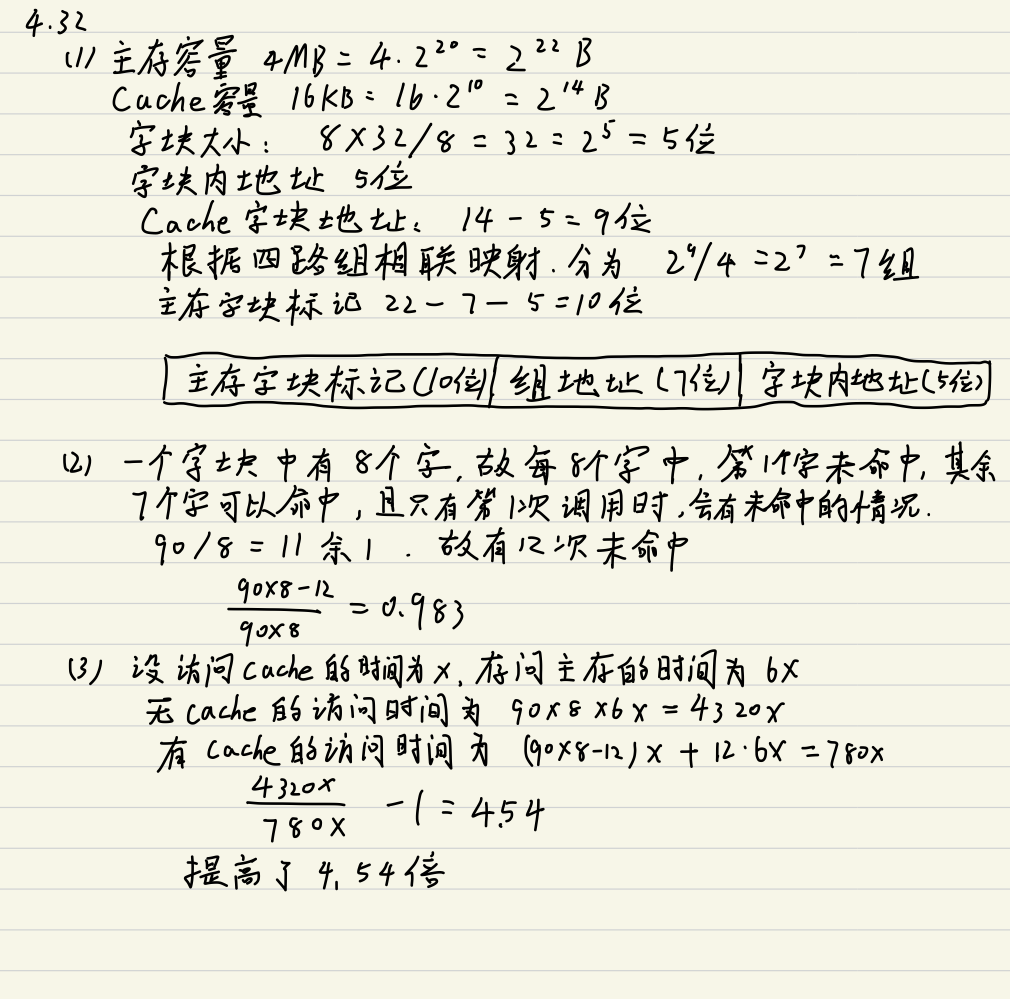 4.32
(1) 主存容量 4MB = 4·2²⁰ = 2²² B
Cache容量 16KB = 16·2¹⁰ = 2¹⁴ B
字块大小: 8×32/8 = 32 = 2⁵ = 5位
字块内地址 5位
Cache字块地址: 14 - 5 = 9位
根据四路组相联映射. 分为 2⁹/4 = 2⁷ = 7组
主存字块标记 22 - 7 - 5 = 10位
主存字块标记(10位) 组地址(7位) 字块内地址(5位)
(2) 一个字块中有8个字, 故每8个字中, 第1个字未命中, 其余
7个字可以命中, 且只有第1次调用时, 会有未命中的情况.
90/8 = 11 余 1 . 故有12次未命中
(90×8-12)/(90×8) = 0.983
(3) 设访问cache的时间为x, 存问主存的时间为 6x
无cache的访问时间为 90×8×6x = 4320x
有cache的访问时间为 (90×8-12)x + 12·6x = 780x
4320x/780x - 1 = 4.54
提高了 4.54倍